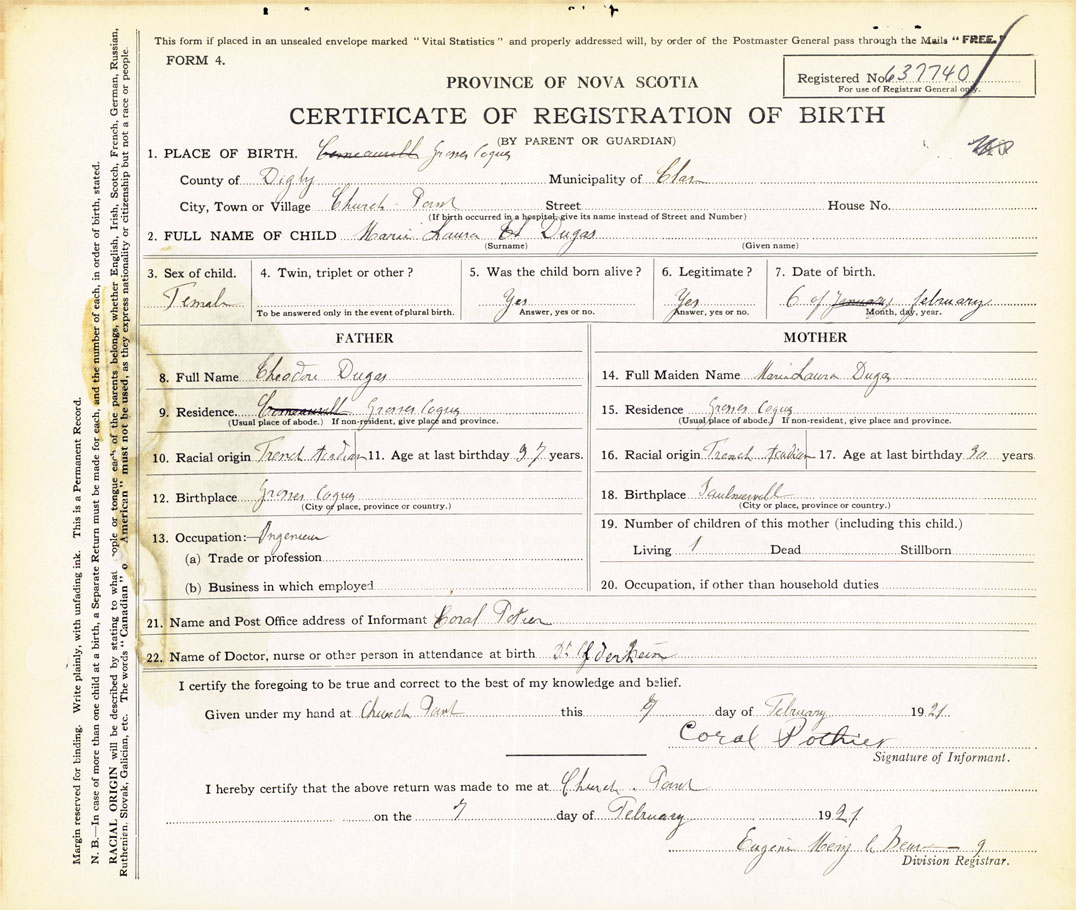 This form if placed in an unsealed envelope marked "Vital Statistics" and properly addressed will, by order of the Postmaster General pass through the Mails "FREE."
FORM 4.
Registered No. 637740
For use of Registrar General only.
PROVINCE OF NOVA SCOTIA
CERTIFICATE OF REGISTRATION OF BIRTH
(BY PARENT OR GUARDIAN)
1. PLACE OF BIRTH. Grosses Coques
County of Digby Municipality of Clare
City, Town or Village Church Point Street House No.
(If birth occurred in a hospital, give its name instead of Street and Number)
2. FULL NAME OF CHILD Marie Laura Dugas
(Surname) (Given name)
3. Sex of child. 4. Twin, triplet or other? 5. Was the child born alive? 6. Legitimate? 7. Date of birth.
Female Yes Yes 6 of January february
To be answered only in the event of plural birth. Answer, yes or no. Answer, yes or no. Month, day, year.
FATHER
8. Full Name Theodore Dugas
9. Residence. Grosses Coques
(Usual place of abode.) If non-resident, give place and province.
10. Racial origin French Acadian 11. Age at last birthday 37 years.
12. Birthplace Grosses Coques
(City or place, province or country.)
13. Occupation:— Ingenieur
(a) Trade or profession
(b) Business in which employed
MOTHER
14. Full Maiden Name Marie Laura Dugas
15. Residence Grosses Coques
(Usual place of abode.) If non-resident, give place and province.
16. Racial origin French Acadian 17. Age at last birthday 30 years.
18. Birthplace Saulnierville
(City or place, province or country.)
19. Number of children of this mother (including this child.)
Living 1 Dead Stillborn
20. Occupation, if other than household duties
21. Name and Post Office address of Informant Coral Potier
22. Name of Doctor, nurse or other person in attendance at birth Dr
I certify the foregoing to be true and correct to the best of my knowledge and belief.
Given under my hand at Church Point this 7 day of February 1921
Coral Pothier
Signature of Informant.
I hereby certify that the above return was made to me at Church Point
on the 7 day of February 1921
Division Registrar.
Margin reserved for binding. Write plainly, with unfading ink. This is a Permanent Record.
N. B.—In case of more than one child at a birth, a Separate Return must be made for each, and the number of each, in order of birth, stated.
RACIAL ORIGIN will be described by stating to what people or tongue each of the parents belongs, whether English, Irish, Scotch, French, German, Russian,
Ruthenien, Slovak, Galician, etc. The words "Canadian" or "American" must not be used, as they express nationality or citizenship but not a race or people.